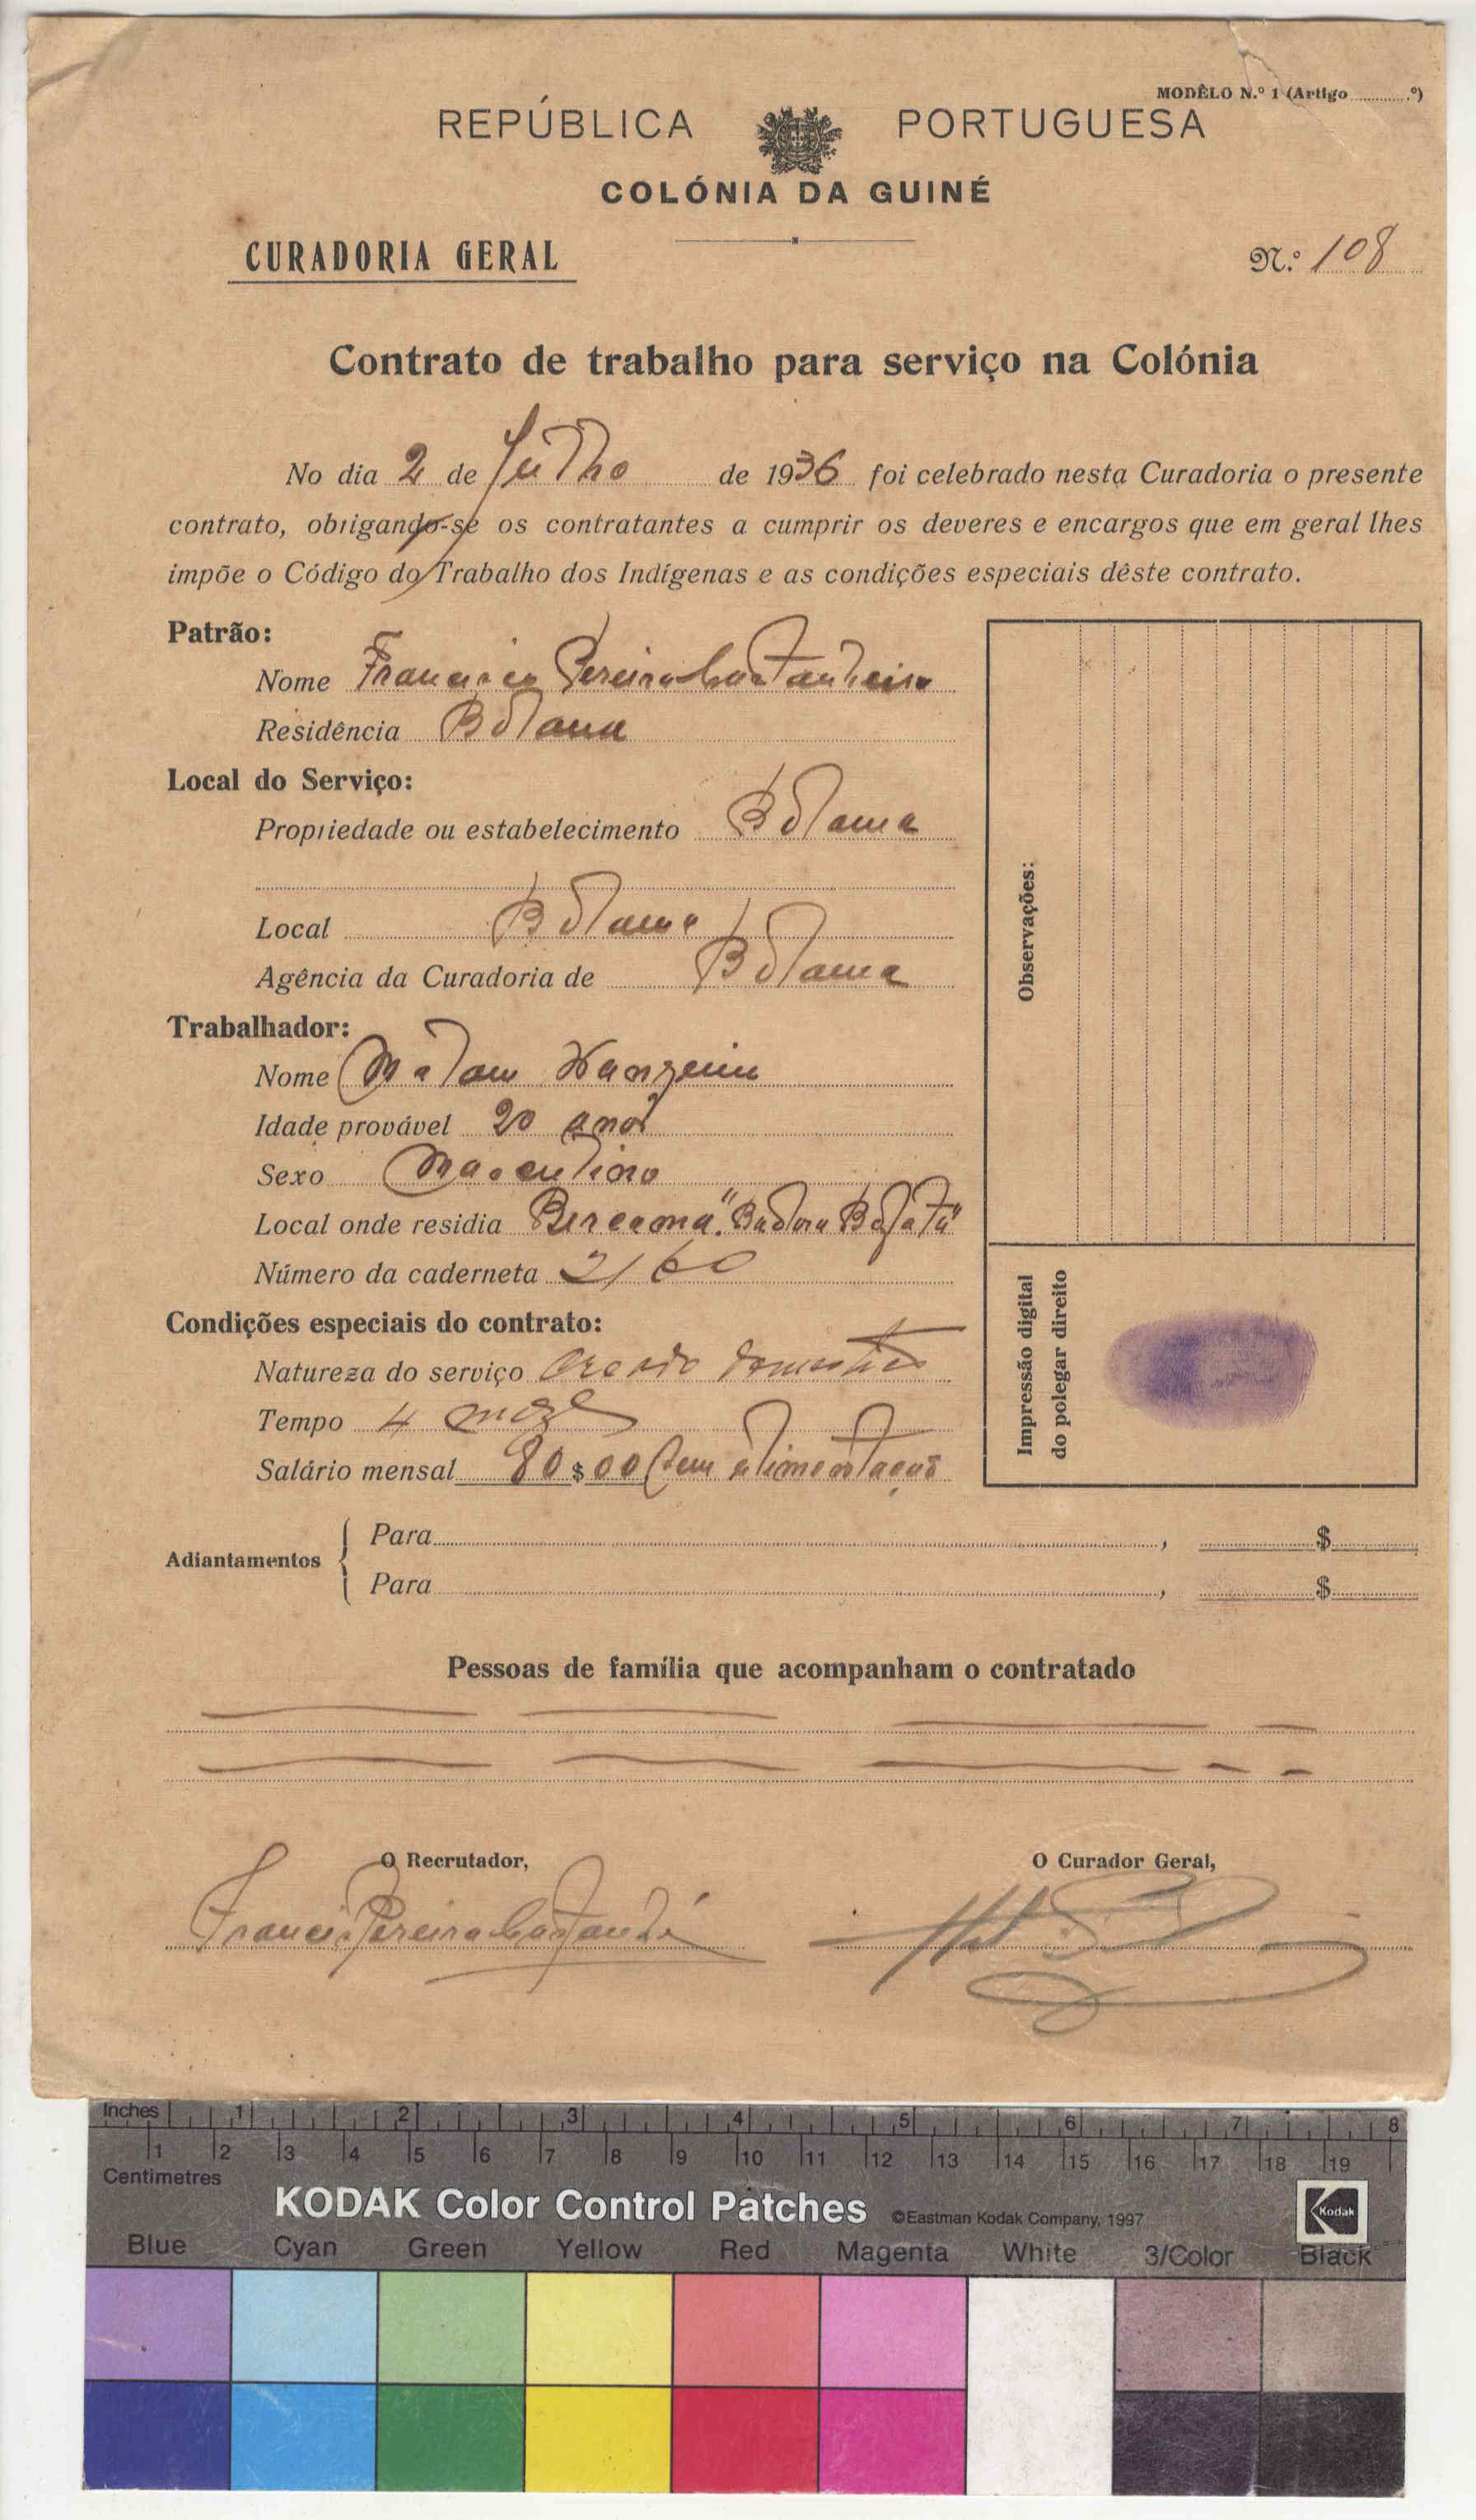 MODÊLO N.º 1 (Artigo ............º)
REPÚBLICA PORTUGUESA
COLÓNIA DA GUINÉ
CURADORIA GERAL
N.º 108
Contrato de trabalho para serviço na Colónia
No dia 2 de Julho de 1936 foi celebrado nesta Curadoria o presente
contrato, obrigando-se os contratantes a cumprir os deveres e encargos que em geral lhes
impõe o Código do Trabalho dos Indígenas e as condições especiais dêste contrato.
Patrão:
Nome Francisco Pereira Castanheira
Residência Bolama
Local do Serviço:
Propriedade ou estabelecimento Bolama
Local Bolama
Agência da Curadoria de Bolama
Trabalhador:
Nome Malam
Idade provável 20 anos
Sexo Masculino
Local onde residia "Badora Bafatá"
Número da caderneta 2160
Condições especiais do contrato:
Natureza do serviço Creado domestico
Tempo 4 mezes
Salário mensal 80$00 (sem alimentação
Observações:
Impressão digital
do polegar direito
Adiantamentos
Para , $
Para , $
Pessoas de família que acompanham o contratado
O Recrutador,
O Curador Geral,
Francisco Pereira
Inches 1 2 3 4 5 6 7 8
1 2 3 4 5 6 7 8 9 10 11 12 13 14 15 16 17 18 19
Centimetres
KODAK Color Control Patches ©Eastman Kodak Company, 1997 Kodak
Blue Cyan Green Yellow Red Magenta White 3/Color Black